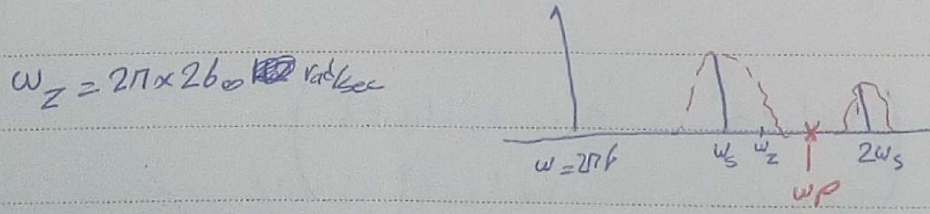 ω_z = 2π×2600 rad/sec
ω=2πf ω_s ω_z 2ω_s
ωp